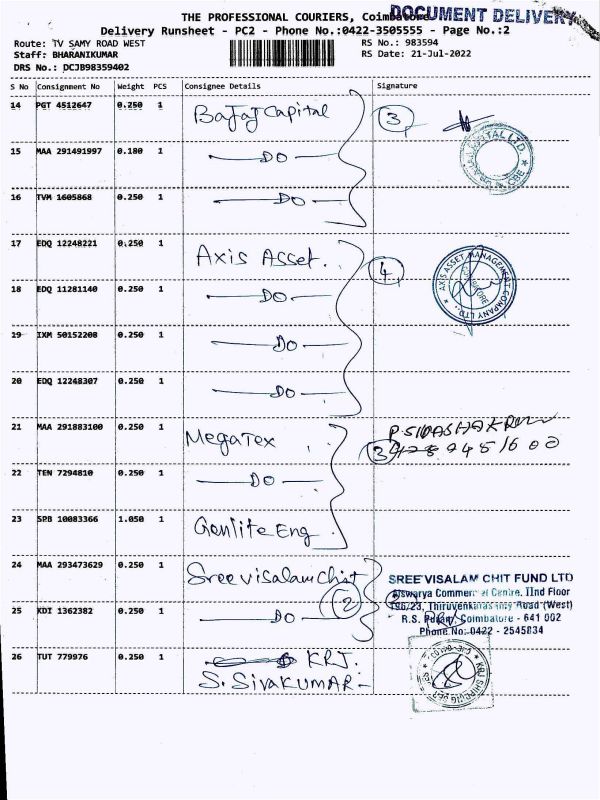 THE PROFESSIONAL COURIERS, Coimbatore
DOCUMENT DELIVERY
Delivery Runsheet - PC2 - Phone No.:0422-3505555 - Page No.:2
Route: TV SAMY ROAD WEST
RS No.: 983594
Staff: BHARANIKUMAR
RS Date: 21-Jul-2022
DRS No.: DCJB98359402
S No Consignment No Weight PCS Consignee Details Signature
14 PGT 4512647 0.250 1 Bajaj Capital 3
15 MAA 291491997 0.180 1 DO
16 TVM 1605868 0.250 1 DO
17 EDQ 12248221 0.250 1 Axis Asset. 4
AXIS ASSET MANAGEMENT COMPANY LTD.
18 EDQ 11281140 0.250 1 DO
19 IXM 50152208 0.250 1 DO
20 EDQ 12248307 0.250 1 DO
21 MAA 291883100 0.250 1 MegaTex 3
22 TEN 7294810 0.250 1 DO
23 SPB 10083366 1.050 1 Genlite Eng
24 MAA 293473629 0.250 1 Sree visalam chit 2
SREE VISALAM CHIT FUND LTD
Aiswarya Commercial Centre, IInd Floor
25 KDI 1362382 0.250 1 DO
R.S. Puram, Coimbatore - 641 002
Phone No:-0422 - 2545834
26 TUT 779976 0.250 1 KRJ.
S. SIVAKUMAR-